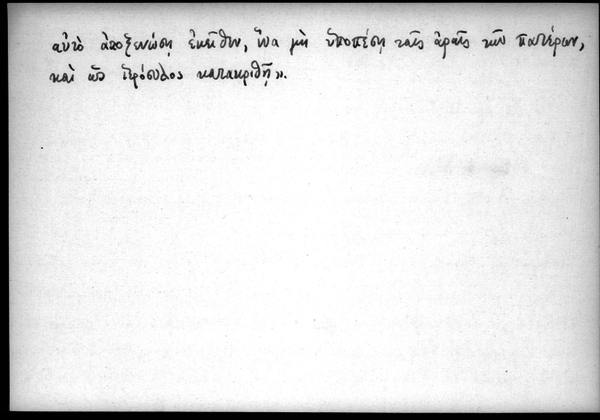 αὐτὸ ἀποξενώσῃ ἐκεῖθεν, ἵνα μὴ ὑποπέσῃ ταῖς ἀραῖς τῶν πατέρων,
καὶ ὡς ἱερόσυλος κατακριθῇ».